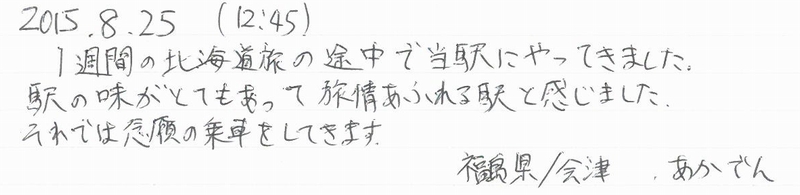 2015.8.25 (12:45)
1週間の北海道旅の途中で当駅にやってきました。
駅の味がとてもあって旅情あふれる駅と感じました.
それでは念願の乗車をしてきます.
福島県/会津 .あかでん